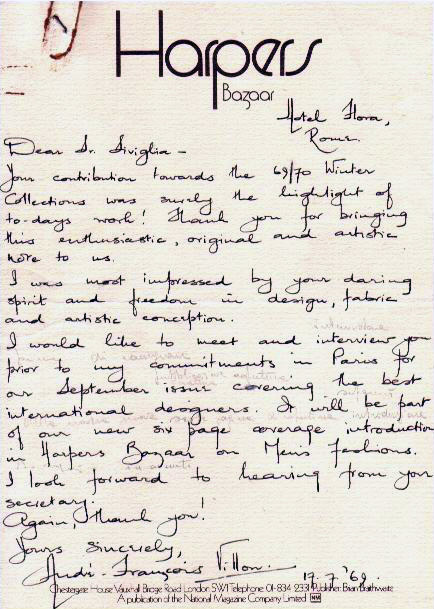 Harpers
Bazaar
Hotel Flora,
Rome.
Dear Sr. Siviglia -
Your contribution towards the 69/70 Winter
Collections was surely the highlight of
to-days work! Thank you for bringing
this enthusiastic, original and artistic
note to us.
I was most impressed by your daring
spirit and freedom in design, fabric
and artistic conception.
I would like to meet and interview you
prior to my commitments in Paris for
our September issue covering the best
international designers. It will be part
of our new six page coverage introduction
in Harpers Bazaar on Men's Fashions.
I look forward to hearing from your
secretary.
Again, thank you!
Yours Sincerely,
André-François Villon.
17.7.'69
Chestergate House Vauxhall Bridge Road London SW1 Telephone 01-834 2331 Publisher: Brian Braithwaite
A publication of the National Magazine Company Limited NM